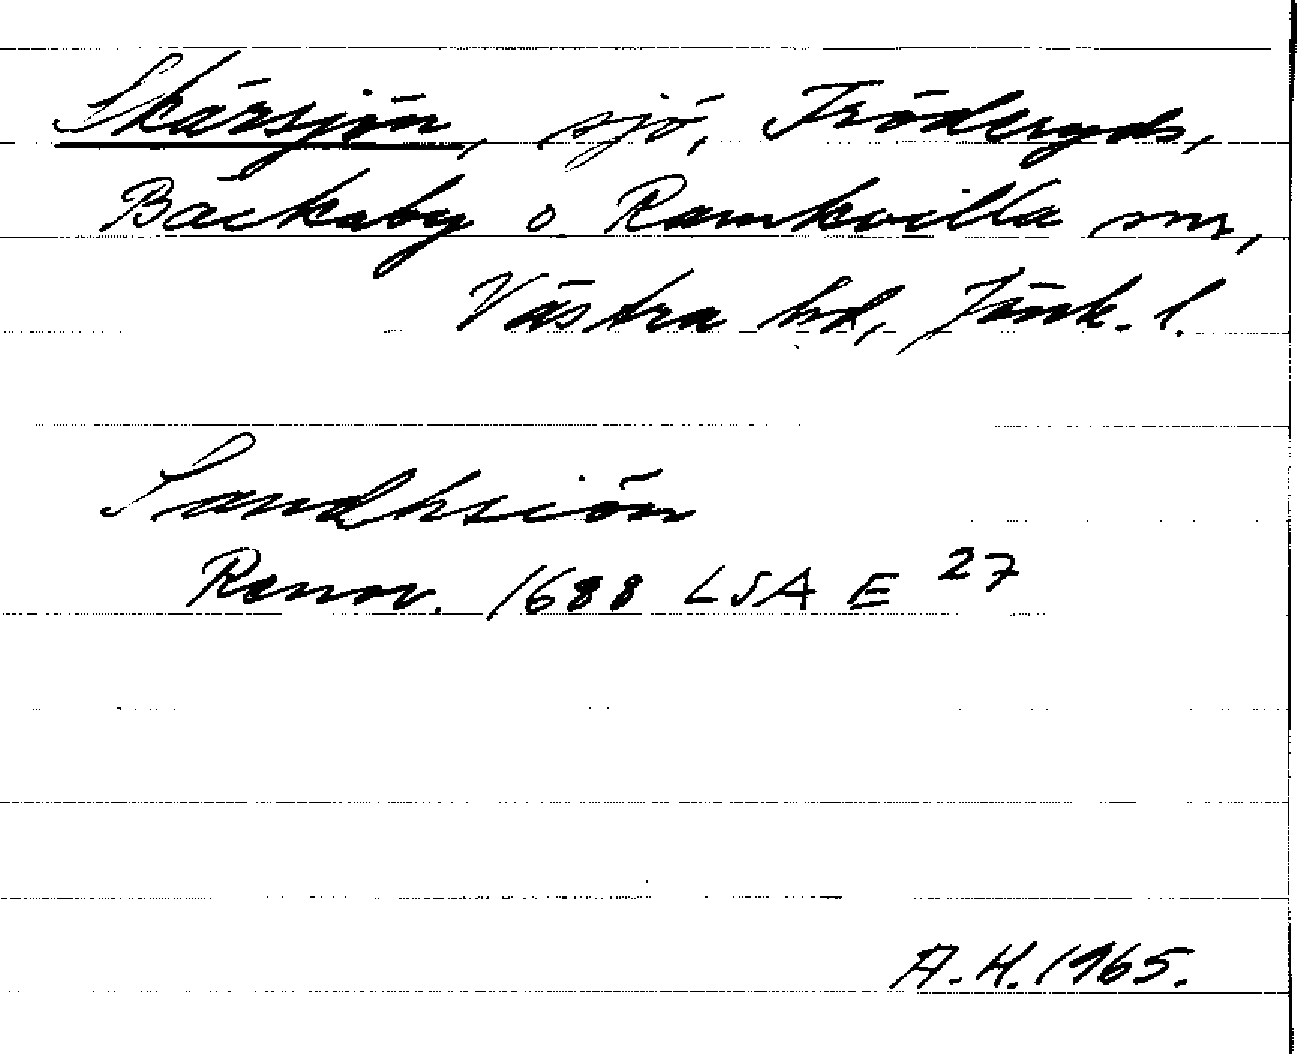 Skärsjön, sjö, Fröderyds,
Bäckaby o Ramkvilla snr,
Västra hd, Jönk. l.
Sandhsiön
Renov. 1688 LSA E 27
A.H. 1965.